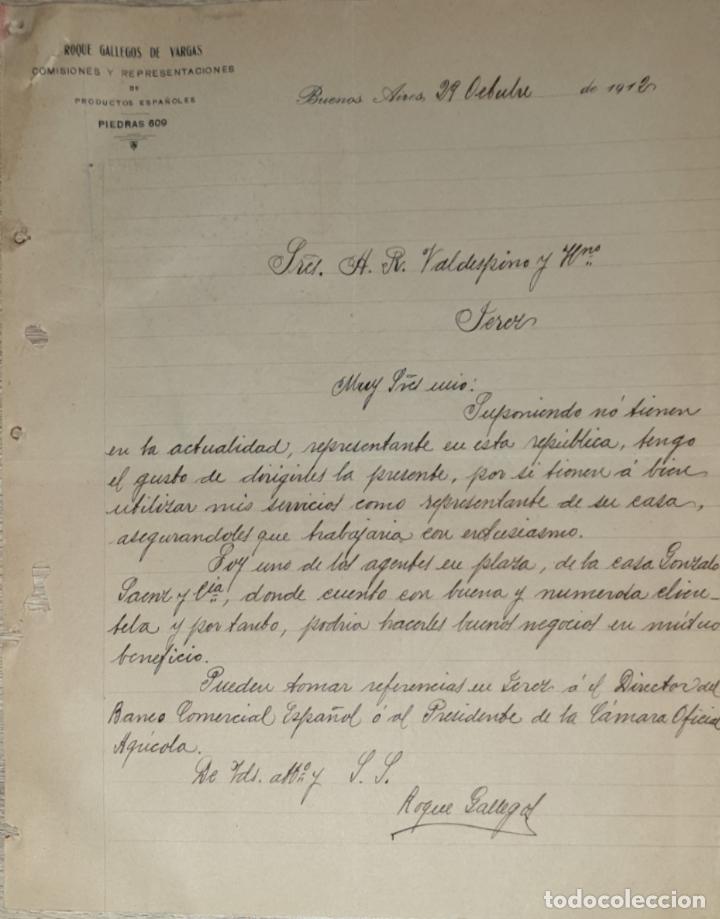 ROQUE GALLEGOS DE VARGAS
COMISIONES Y REPRESENTACIONES
DE
PRODUCTOS ESPAÑOLES
PIEDRAS 609
Buenos Aires, 29 Octubre de 1912
Sres. A. R. Valdespino y Hno
Jerez
Muy Sres mio:
Suponiendo nó tienen
en la actualidad, representante en esta república, tengo
el gusto de dirigirles la presente, por si tienen á bien
utilizar mis servicios como representante de su casa,
asegurandoles que trabajaria con entusiasmo.
Soy uno de los agentes en plaza, de la casa Gonzalo
Saenz y Cia, donde cuento con buena y numerosa clien-
tela y por tanto, podria hacerles buenos negocios en mútuo
beneficio.
Pueden tomar referencias en Jerez á el Director del
Banco Comercial Español ó al Presidente de la Cámara Oficial
Agrícola.
De Vds. atto y S. S.
Roque Gallegos
todocoleccion